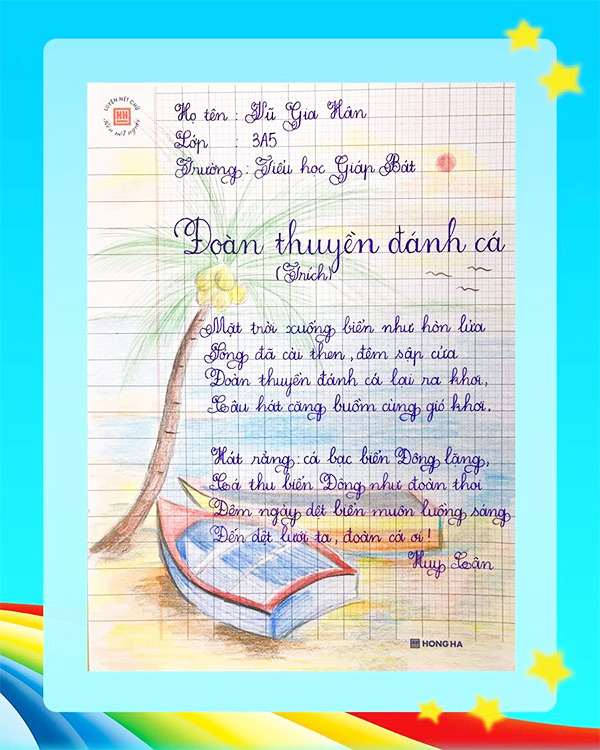 LUYỆN NÉT CHỮ
HH
Họ tên : Vũ Gia Hân
Lớp : 3A5
Trường : Tiểu học Giáp Bát
Đoàn thuyền đánh cá
(Trích)
Mặt trời xuống biển như hòn lửa
Sóng đã cài then, đêm sập cửa
Đoàn thuyền đánh cá lại ra khơi,
Câu hát căng buồm cùng gió khơi.
Hát rằng: cá bạc biển Đông lặng,
Cá thu biển Đông như đoàn thoi
Đêm ngày dệt biển muôn luồng sáng
Đến dệt lưới ta, đoàn cá ơi!
Huy Cận
HONG HA